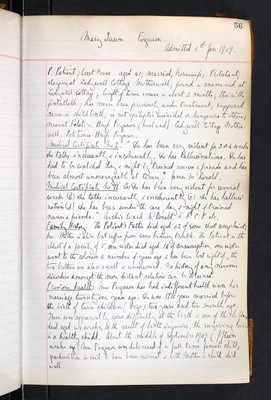 56
Mary Queen Ferguson.
Admitted 5th Jan 1909.
P. Patient; Poor House. aged 41; Married, housewife; Protestant,
Cottage Motherwell, found & examined at
Cottage; length of time insane is about 3 months; this is the
first attack; has never been previously under treatment; supposed
cause is child birth; is not epileptic suicidal or dangerous to others;
nearest relative Hugh Ferguson (husband) Cottage Mother-
well. Petitioner Hugh Ferguson.
Medical Certificate No I. "She has been very violent for 3 or 4 weeks
She talks incessantly & incoherently. She has hallucinations. She has
had to be watched day & night by trained nurses & friends and has
been almost unmanageable at times." John McDonald.
Medical Certificate No II (1) She has been very violent for several
weeks (2) She talks incessantly & incoherently (3) She has halluci-
nations (4) She has been under the care day & night of trained
nurses & friends." Archd Ward McDonald
Family History. The Patient's Father died aged 52 of some chest complaint;
her Mother is alive but suffers from some bladder trouble. The Patient is the
eldest of a family of 5; one sister died aged 18 of consumption, one sister
went to the colonies a number of years ago & has been lost sight of, the
two brothers are alive & well & unmarried. No history of any nervous
disorder amongst the more distant relatives can be obtained.
Previous health: Mrs Ferguson has had indifferent health since her
marriage twenty one years ago. She was 12½ years married before
the birth of twin children (boys) two years and two months ago.
There was apparently some difficulty at the birth & one of the children
died aged six weeks, as the result of birth injuries, the surviving twin
is a healthy child. About the middle of September 1908 (fifteen
weeks ago) Mrs Ferguson was delivered of a full time female child,
parturition is said to have been normal & both Mother & child did
well.